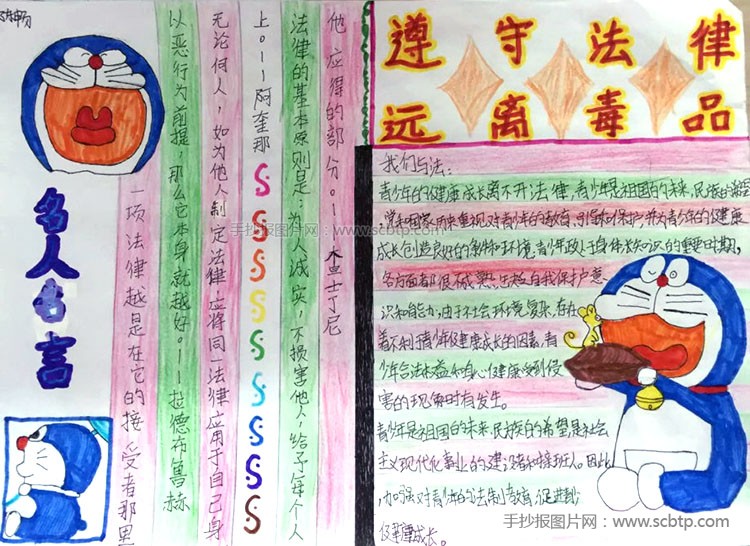 遵守法律
远离毒品
名人名言
一项法律越是在它的接受者那里
以恶行为前提,那么它本身就越好。——拉德布鲁赫
无论何人,如为他人制定法律应将同一法律应用于自己身
上。——阿奎那
法律的基本原则是:为人诚实,不损害他人,给予每个人
他应得的部分。——查士丁尼
我们与法:
青少年的健康成长离不开法律,青少年是祖国的未来,民族的希望
,党和国家历来重视对青少年的教育,引导和保护,并为青少年的健康
成长创造良好的条件和环境,青少年正处于身体长知识的重要时期,
各方面都很不成熟,乐趋自我保护意
识和能力,由于社会环境复杂,存在
着不利于青少年健康成长的因素,青
少年合法权益和身心健康受到侵
害的现象时有发生。
青少年是祖国的未来,民族的希望是社会
主义现代化事业的建设者和接班人。因此
,加强对青少年的法制教育,促进
健康成长。
手抄报图片网:www.scbtp.com
手抄报图片网:www.scbtp.com